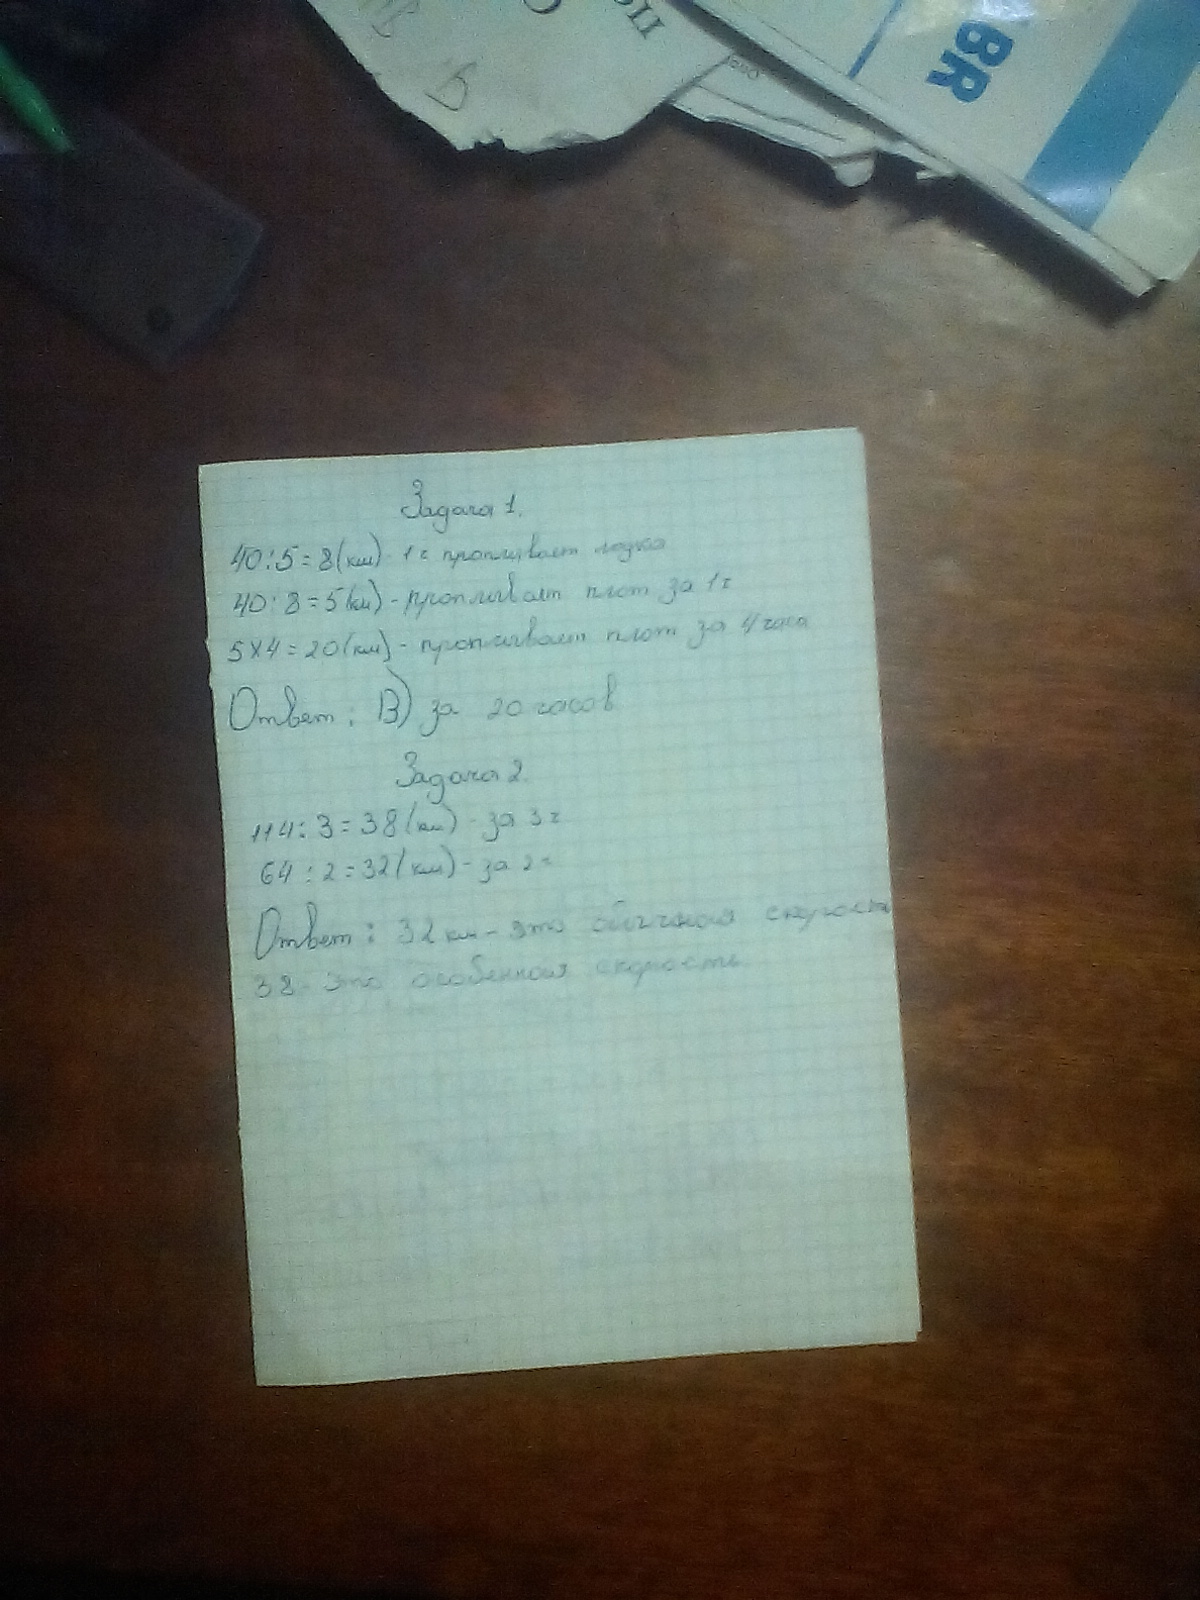 BR
В
Задача 1.
40:5=8(км) - 1ч проплывает лодка
40:8=5(км) - проплывает плот за 1ч
5х4=20(км) - проплывает плот за 4 часа
Ответ: В) за 20 часов
Задача 2.
114:3=38(км) - за 3ч
64:2=32(км) - за 2ч
Ответ: 32 км - это обычная скорость
38 - это особенная скорость.